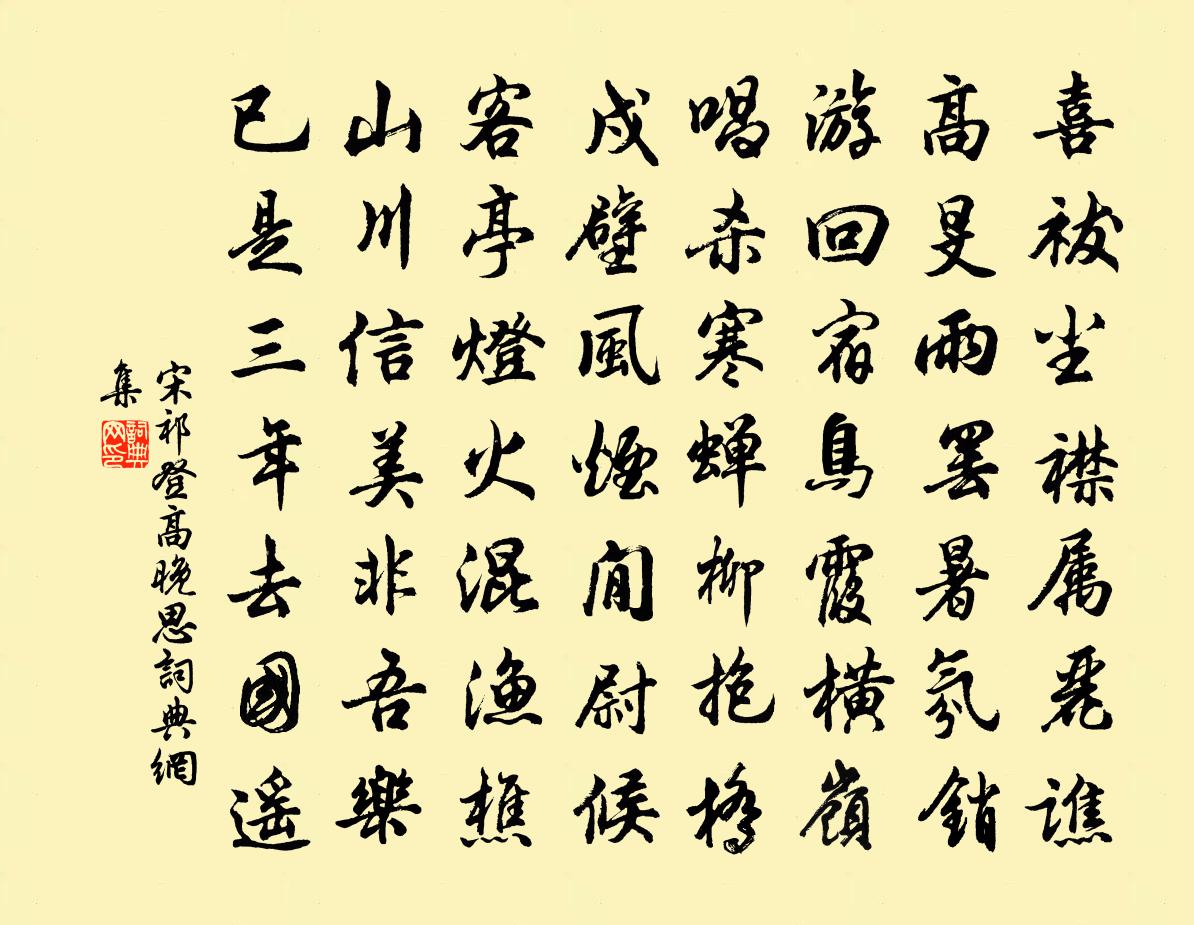 喜祓尘襟属丽谯
高旻雨罢暑氛銷
游回宿鳥霞橫嶺
唱杀寒蝉柳抱橋
戍壁風煙閒尉候
客亭燈火混漁樵
山川信美非吾樂
已是三年去國遥
宋祁登高晚思詞典網
集
詞典网印